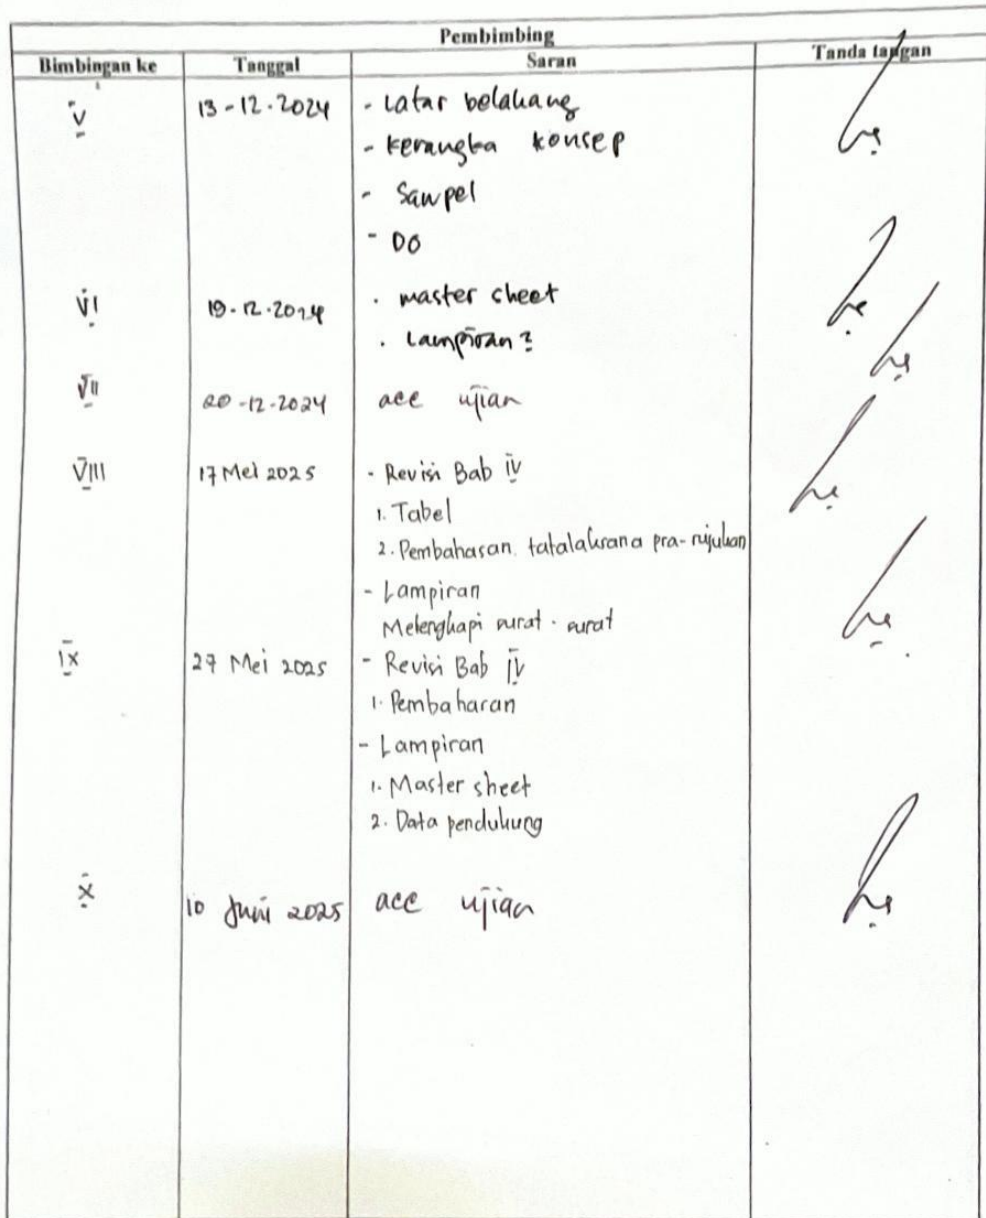 Pembimbing
Bimbingan ke Tanggal Saran Tanda tangan
V 13-12-2024 - Latar belakang
- Kerangka konsep
- Sampel
- DO
VI 19-12-2024 . master sheet
. Lampiran2
VII 20-12-2024 acc ujian
VIII 17 Mei 2025 - Revisi Bab IV
1. Tabel
2. Pembahasan. tatalaksana pra-rujukan
- Lampiran
Melengkapi surat-surat
IX 27 Mei 2025 - Revisi Bab IV
1. Pembahasan
- Lampiran
1. Master sheet
2. Data pendukung
X 10 Juni 2025 acc ujian